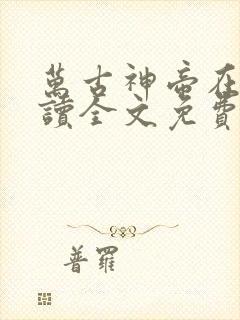 萬古神帝在
讀全文免費
普羅